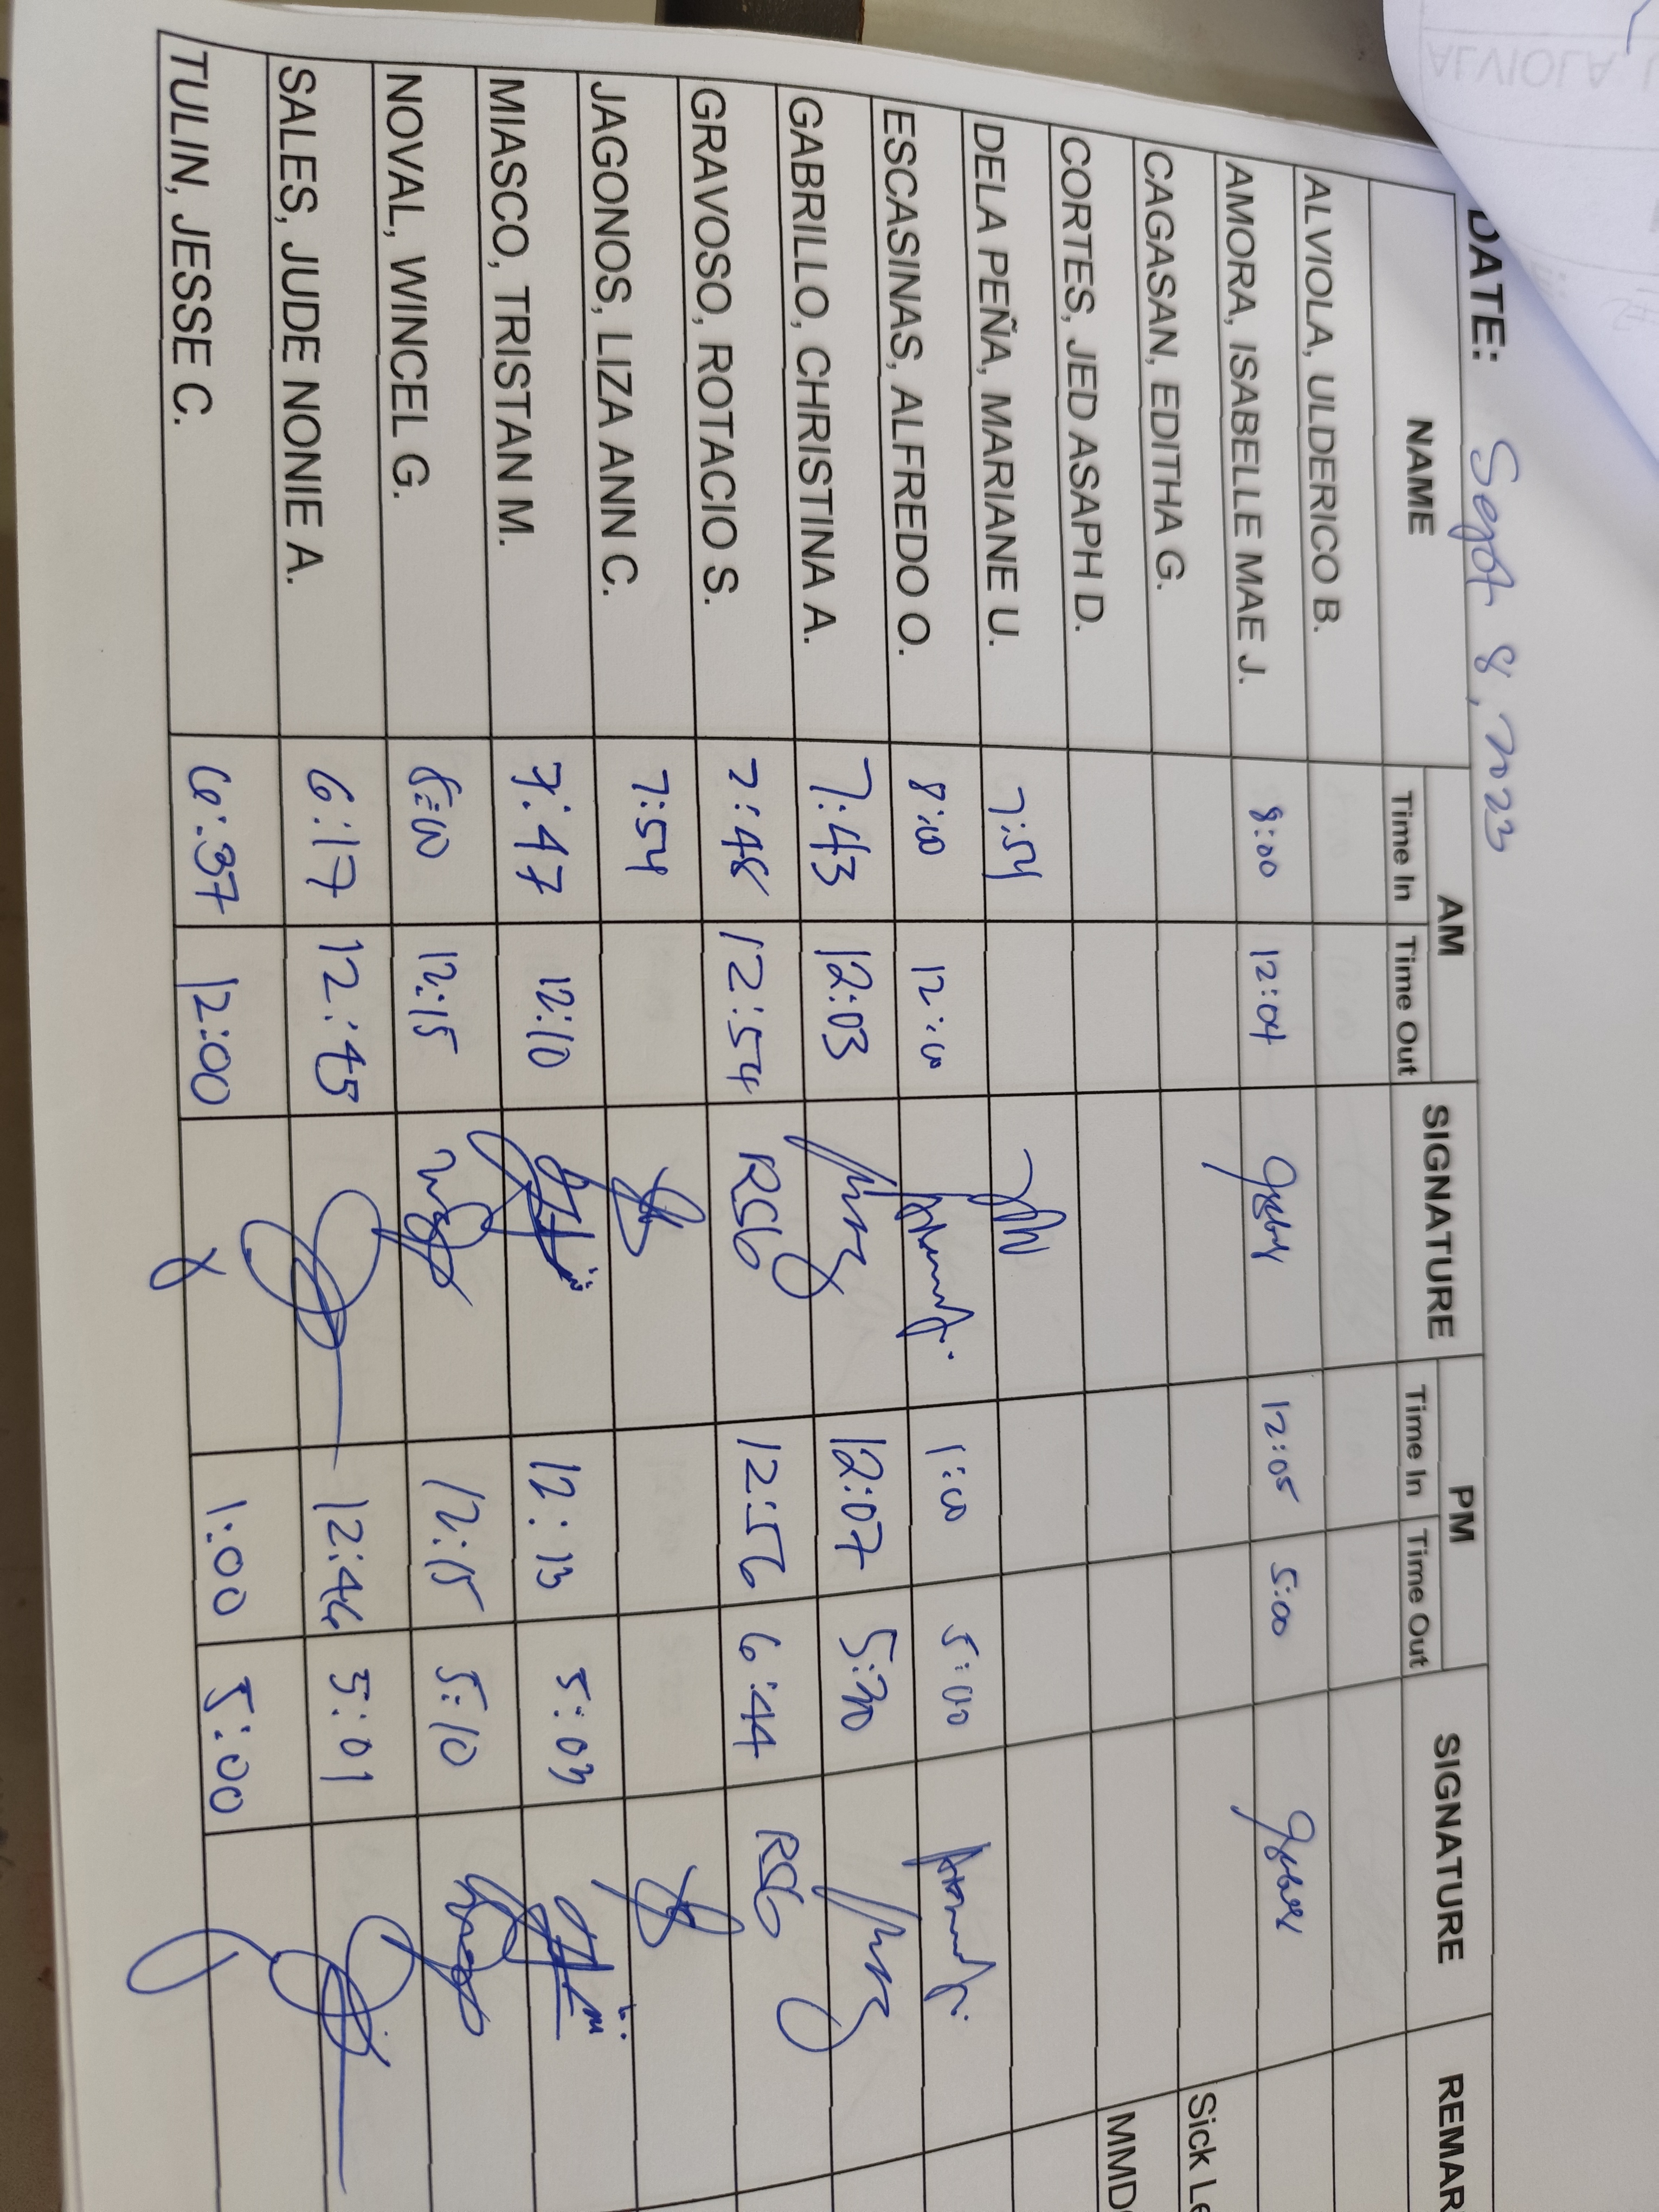 DATE: Sept 8, 2023
NAME AM SIGNATURE PM SIGNATURE REMAR
Time In Time Out Time In Time Out
ALVIOLA, ULDERICO B.
AMORA, ISABELLE MAE J. 8:00 12:04 12:05 5:00
CAGASAN, EDITHA G. Sick Le
CORTES, JED ASAPH D. MMD
DELA PEÑA, MARIANE U. 7:54
ESCASINAS, ALFREDO O. 8:00 12:00 1:00 5:00
GABRILLO, CHRISTINA A. 7:43 12:03 12:07 5:30
GRAVOSO, ROTACIO S. 7:48 12:54 RSG 12:56 6:44 RSG
JAGONOS, LIZA ANN C. 7:54
MIASCO, TRISTAN M. 7:47 12:10 12:13 5:03
NOVAL, WINCEL G. 8:00 12:15 12:15 5:10
SALES, JUDE NONIE A. 6:17 12:45 12:46 5:01
TULIN, JESSE C. 6:37 12:00 1:00 5:00